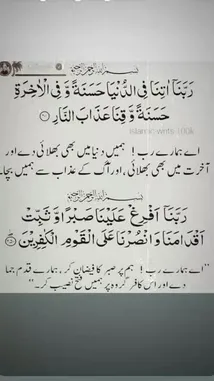 بِسْمِ اللهِ الرَّحْمٰنِ الرَّحِيْمِ
رَبَّنَآ اٰتِنَا فِی الدُّنْیَا حَسَنَةً وَّ فِی الْاٰخِرَةِ
حَسَنَةً وَّقِنَا عَذَابَ النَّارِ
اے ہمارے رب! ہمیں دنیا میں بھی بھلائی دے اور
آخرت میں بھی بھلائی، اور آگ کے عذاب سے ہمیں بچا۔
بِسْمِ اللهِ الرَّحْمٰنِ الرَّحِيْمِ
رَبَّنَآ اَفْرِغْ عَلَیْنَا صَبْرًا وَّ ثَبِّتْ
اَقْدَامَنَا وَانْصُرْنَا عَلَی الْقَوْمِ الْکٰفِرِیْنَ
"اے ہمارے رب! ہم پر صبر کا فیضان کر، ہمارے قدم جما
دے اور اس کافر گروہ پر ہمیں فتح نصیب کر۔"